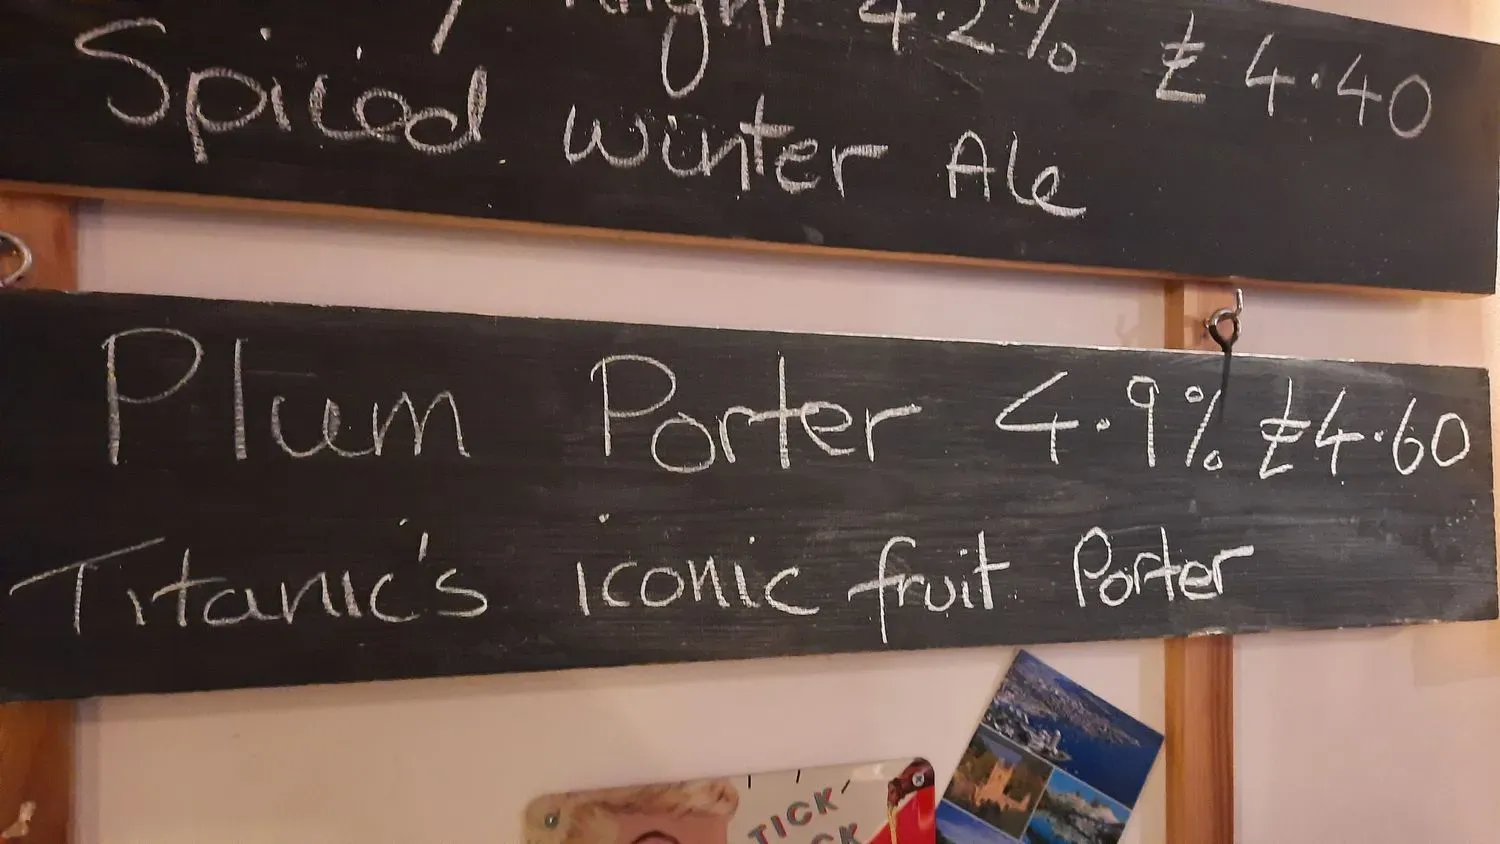 4.2% £4.40
Spiced winter Ale
Plum Porter 4.9% £4.60
Titanic's iconic fruit Porter
TICK